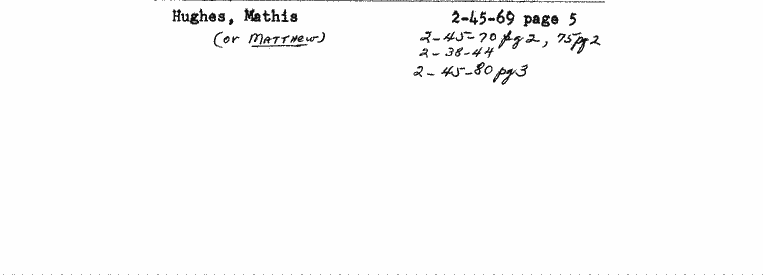 Hughes, Mathis 2-45-69 page 5
(or MATTHEW) 2-45-70 pg 2, 75 pg 2
2-38-44
2-45-80 pg 3